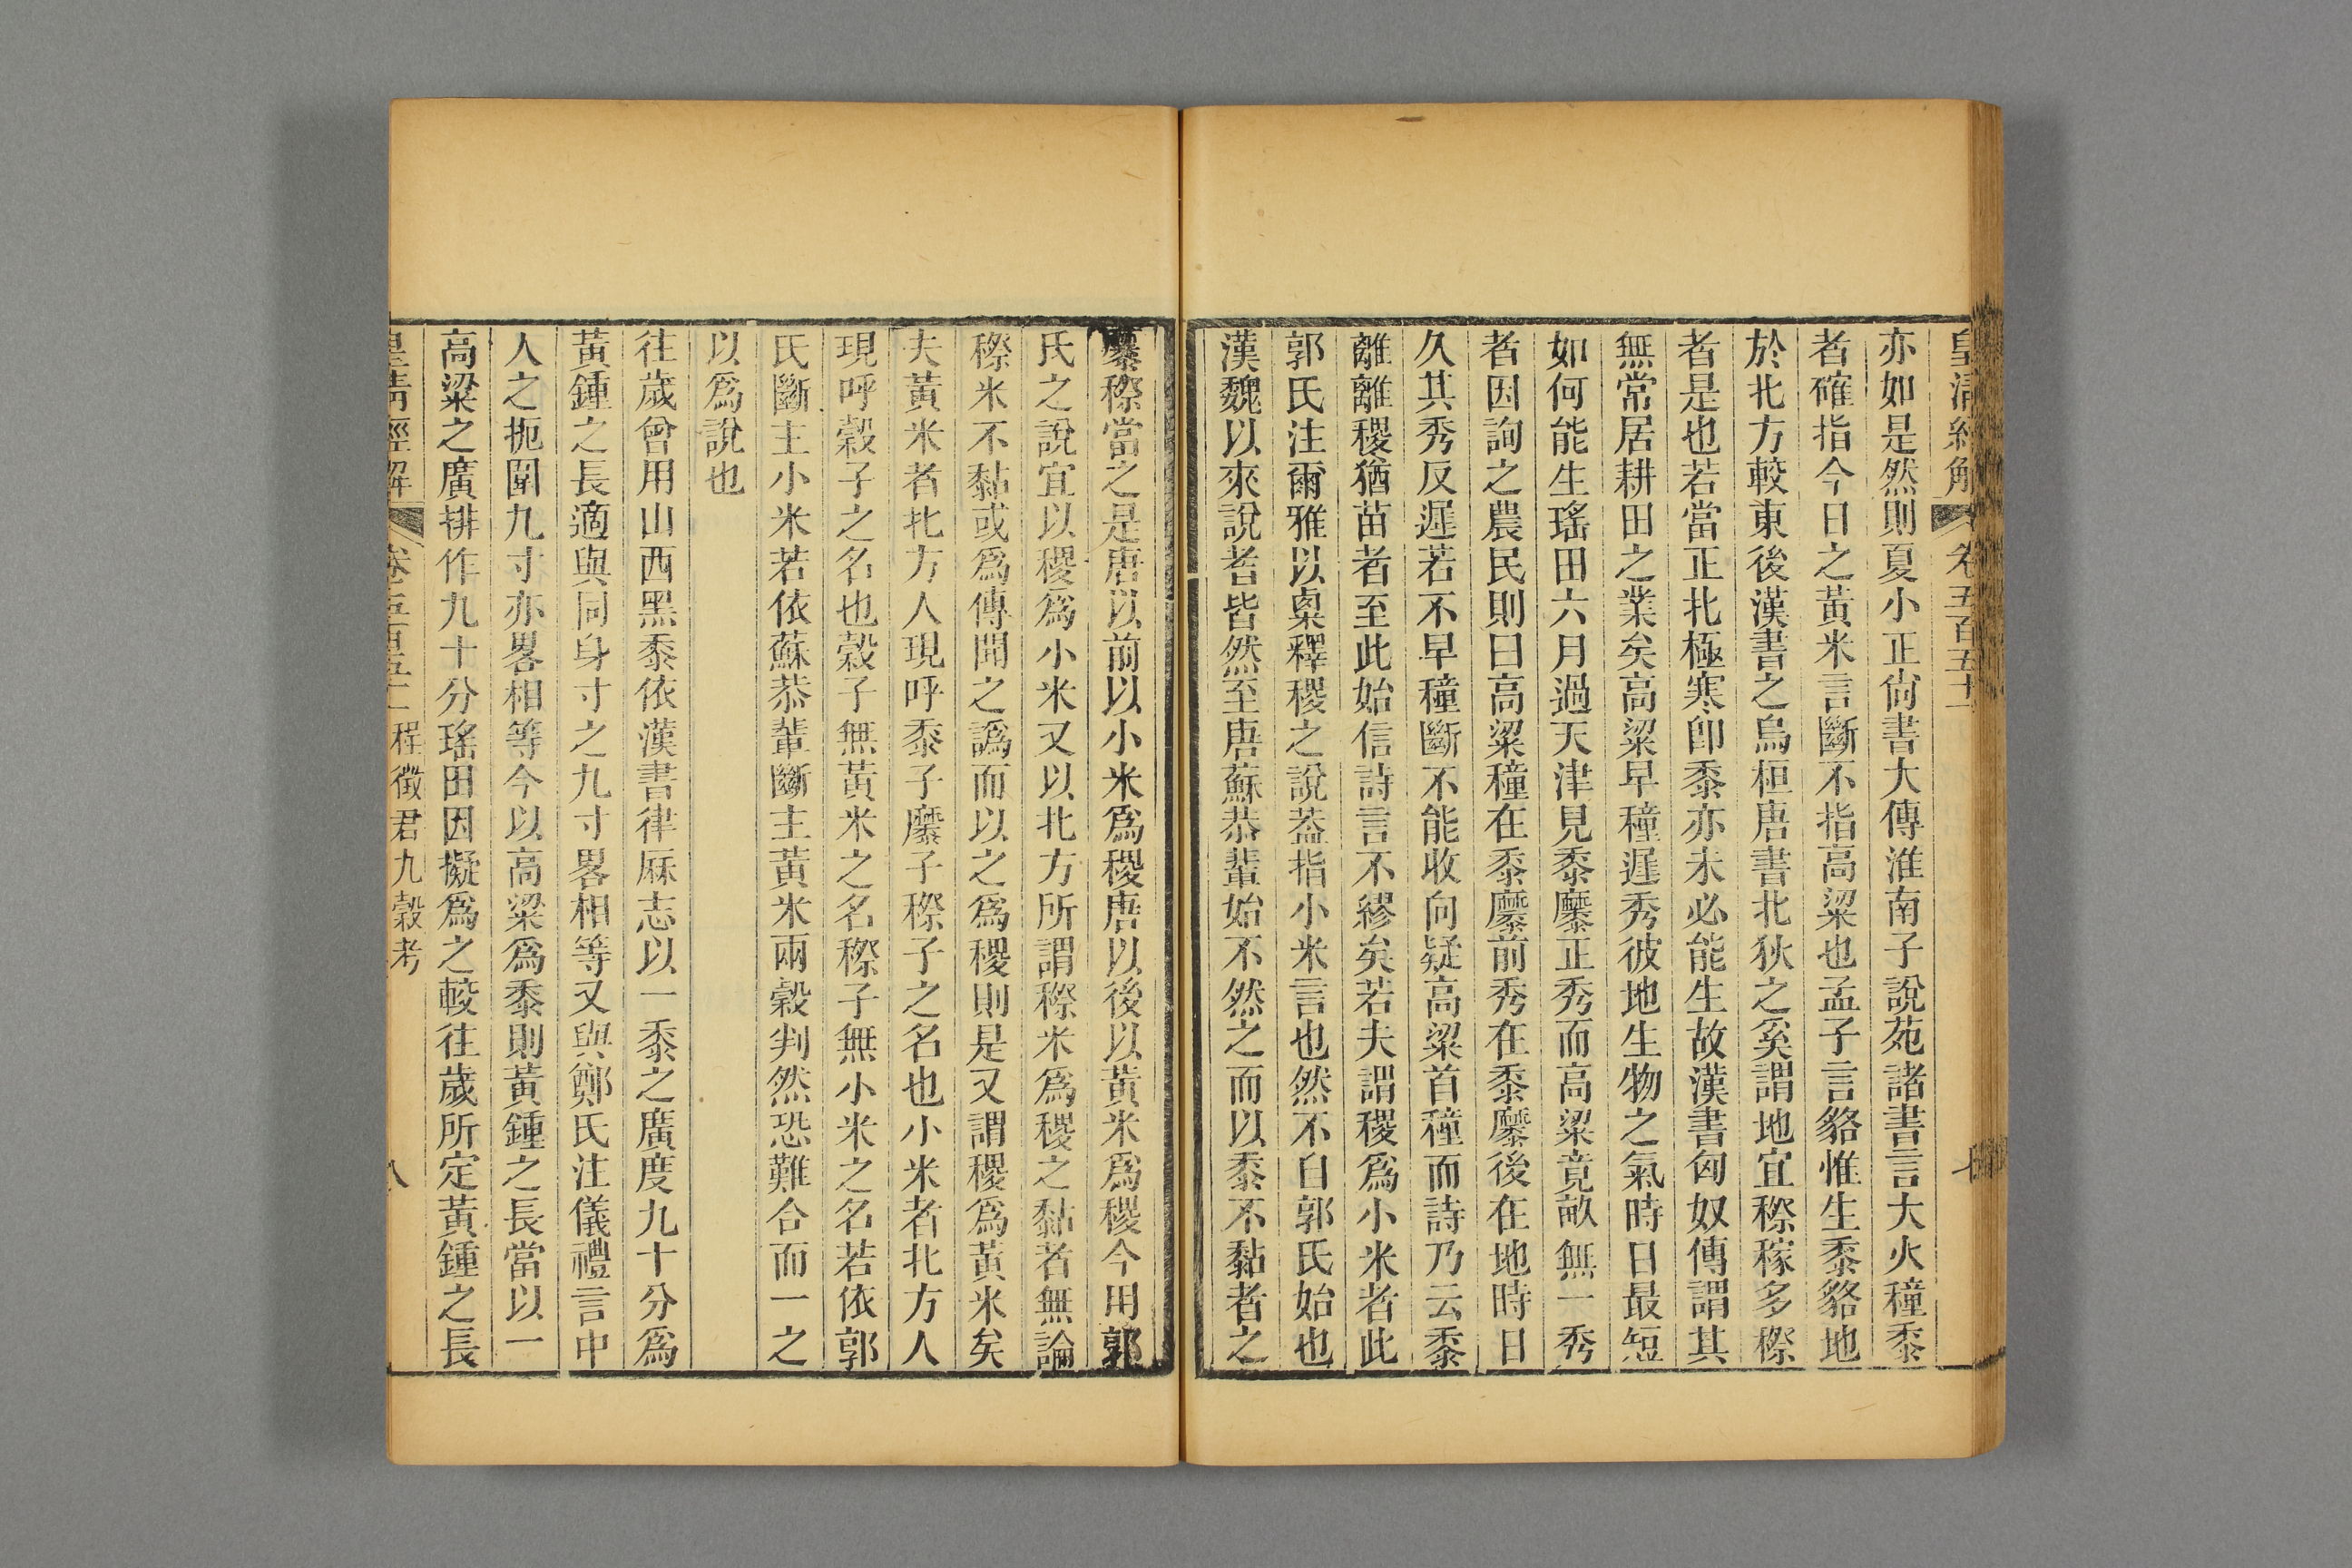 皇清經解 卷五百五十 七
亦如是然則夏小正尙書大傳淮南子說苑諸書言大火穜黍
者確指今日之黃米言斷不指高粱也孟子言貉惟生黍貉地
於北方較東後漢書之烏桓唐書北狄之奚謂地宜穄稼多穄
者是也若當正北極寒卽黍亦未必能生故漢書匈奴傳謂其
無常居耕田之業矣高粱早穜遲秀彼地生物之氣時日最短
如何能生瑤田六月過天津見黍穈正秀而高粱竟畝無一秀
者因詢之農民則曰高粱穜在黍穈前秀在黍穈後在地時日
久其秀反遲若不早穜斷不能收向疑高粱首穜而詩乃云黍
離離稷猶苗者至此始信詩言不繆矣若夫謂稷爲小米者此
郭氏注爾雅以稟釋稷之說葢指小米言也然不自郭氏始也
漢魏以來說者皆然至唐蘇恭輩始不然之而以黍不黏者之
穈穄當之是唐以前以小米爲稷唐以後以黃米爲稷今用郭
氏之說宜以稷爲小米又以北方所謂穄米爲稷之黏者無論
穄米不黏或爲傳聞之譌而以之爲稷則是又謂稷爲黃米矣
夫黃米者北方人現呼黍子穈子穄子之名也小米者北方人
現呼穀子之名也穀子無黃米之名穄子無小米之名若依郭
氏斷主小米若依蘇恭輩斷主黃米兩穀判然恐難合而一之
以爲說也
往歲曾用山西黑黍依漢書律厤志以一黍之廣度九十分爲
黃鍾之長適與同身寸之九寸畧相等又與鄭氏注儀禮言中
人之扼圍九寸亦畧相等今以高粱爲黍則黃鍾之長當以一
高粱之廣排作九十分瑤田因擬爲之較往歲所定黃鍾之長
皇清經解 卷五百五十 程徵君九穀考 八